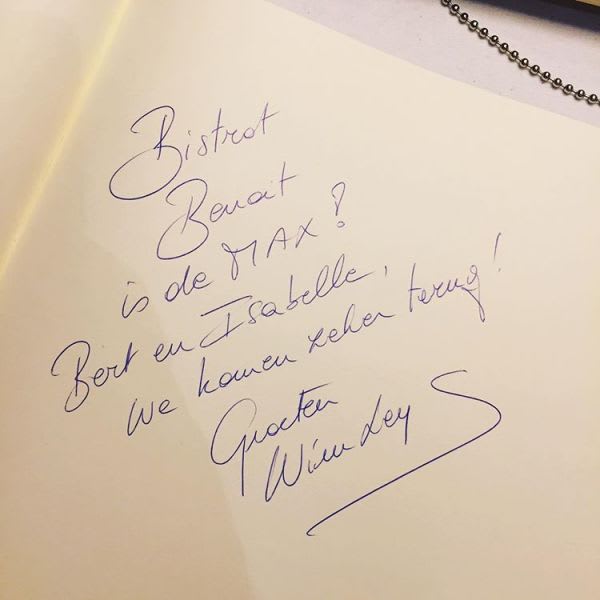 Bistrot
Benoit
is de MAX!
Bert en Isabelle,
we komen zeker terug!
Groeten
Wim Ley S